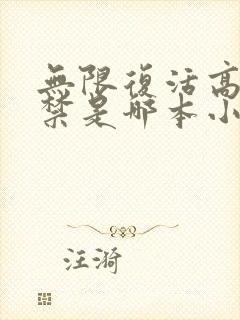 無限復活高
禁是哪本小
汪漪